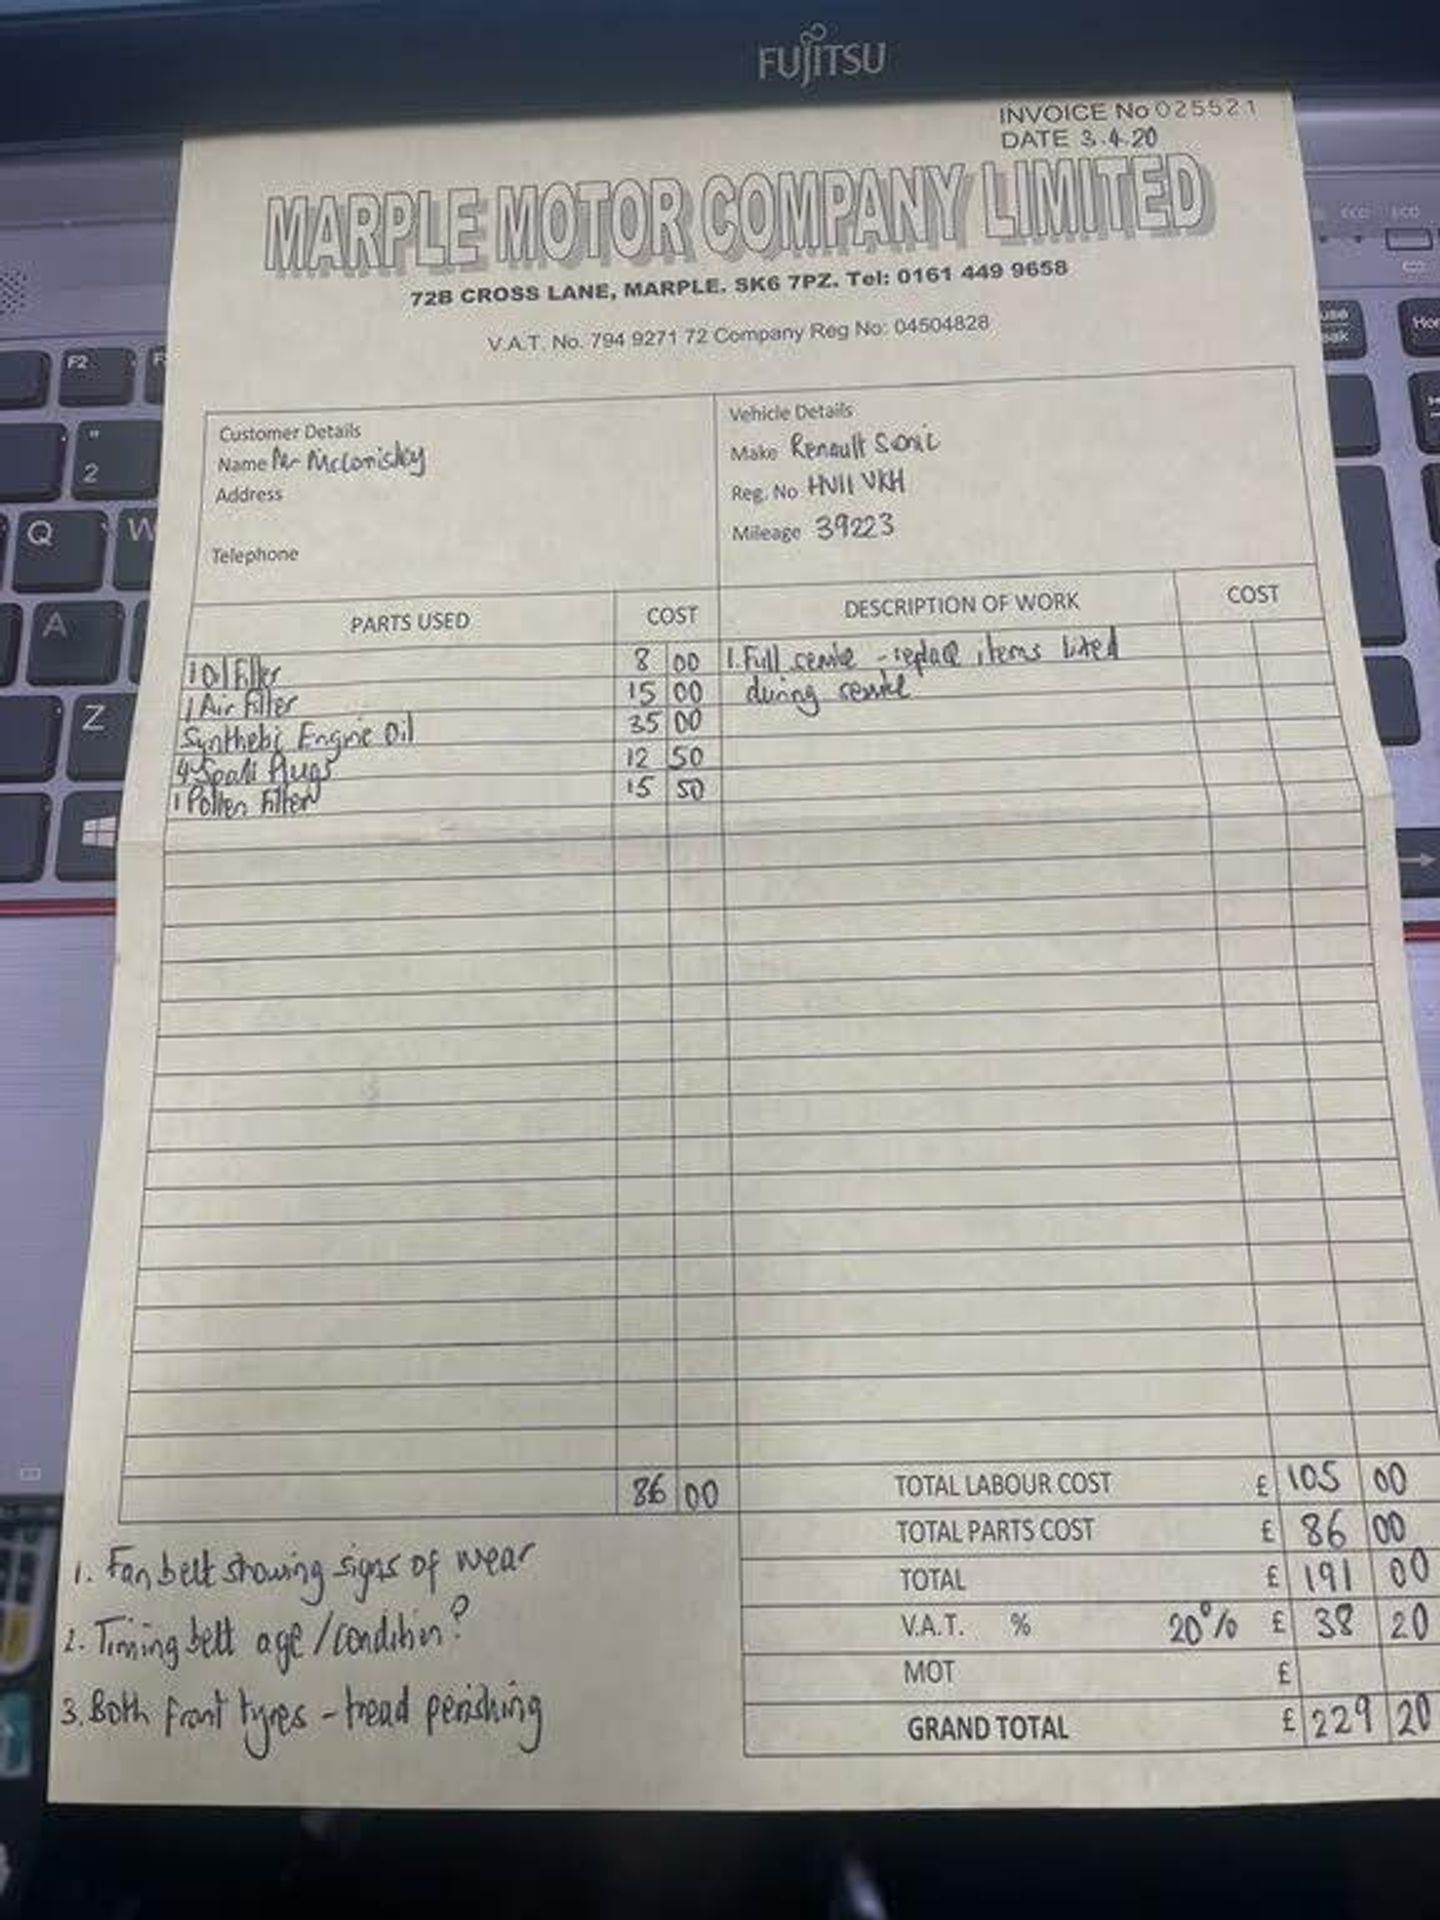 FUJITSU
INVOICE No 025521
DATE 3.4.20
MARPLE MOTOR COMPANY LIMITED
72B CROSS LANE, MARPLE. SK6 7PZ. Tel: 0161 449 9658
V.A.T. No. 794 9271 72 Company Reg No: 04504828
Customer Details
Name Mr
Address
Telephone
Vehicle Details
Make Renault
Reg. No HV11 VKH
Mileage 39223
PARTS USED COST DESCRIPTION OF WORK COST
1 Oil Filter 8 00 1. Full service - replace items listed
1 Air Filter 15 00 during service
Engine Oil 35 00
4 Spark Plugs 12 50
1 Pollen Filter 15 50
86 00
TOTAL LABOUR COST £ 105 00
TOTAL PARTS COST £ 86 00
TOTAL £ 191 00
V.A.T. % 20% £ 38 20
MOT £
GRAND TOTAL £ 229 20
1. Fan belt showing signs of wear
2. Timing belt age/condition?
3. Both front tyres - tread perishing
F2
"
2
Q
W
A
Z
ECO
ECO